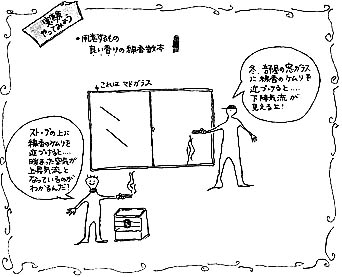 実験
やってみよう
・用意するもの
良い香りの線香数本
↓これは マドガラス
冬、部屋の窓ガラス
に線香のケムリを
近づけると‥‥
下降気流が
見えるよ!
ストーブの上に
線香のケムリを
近づけると‥‥
暖まった空気が
上昇気流と
なっているのが
わかるんだ!